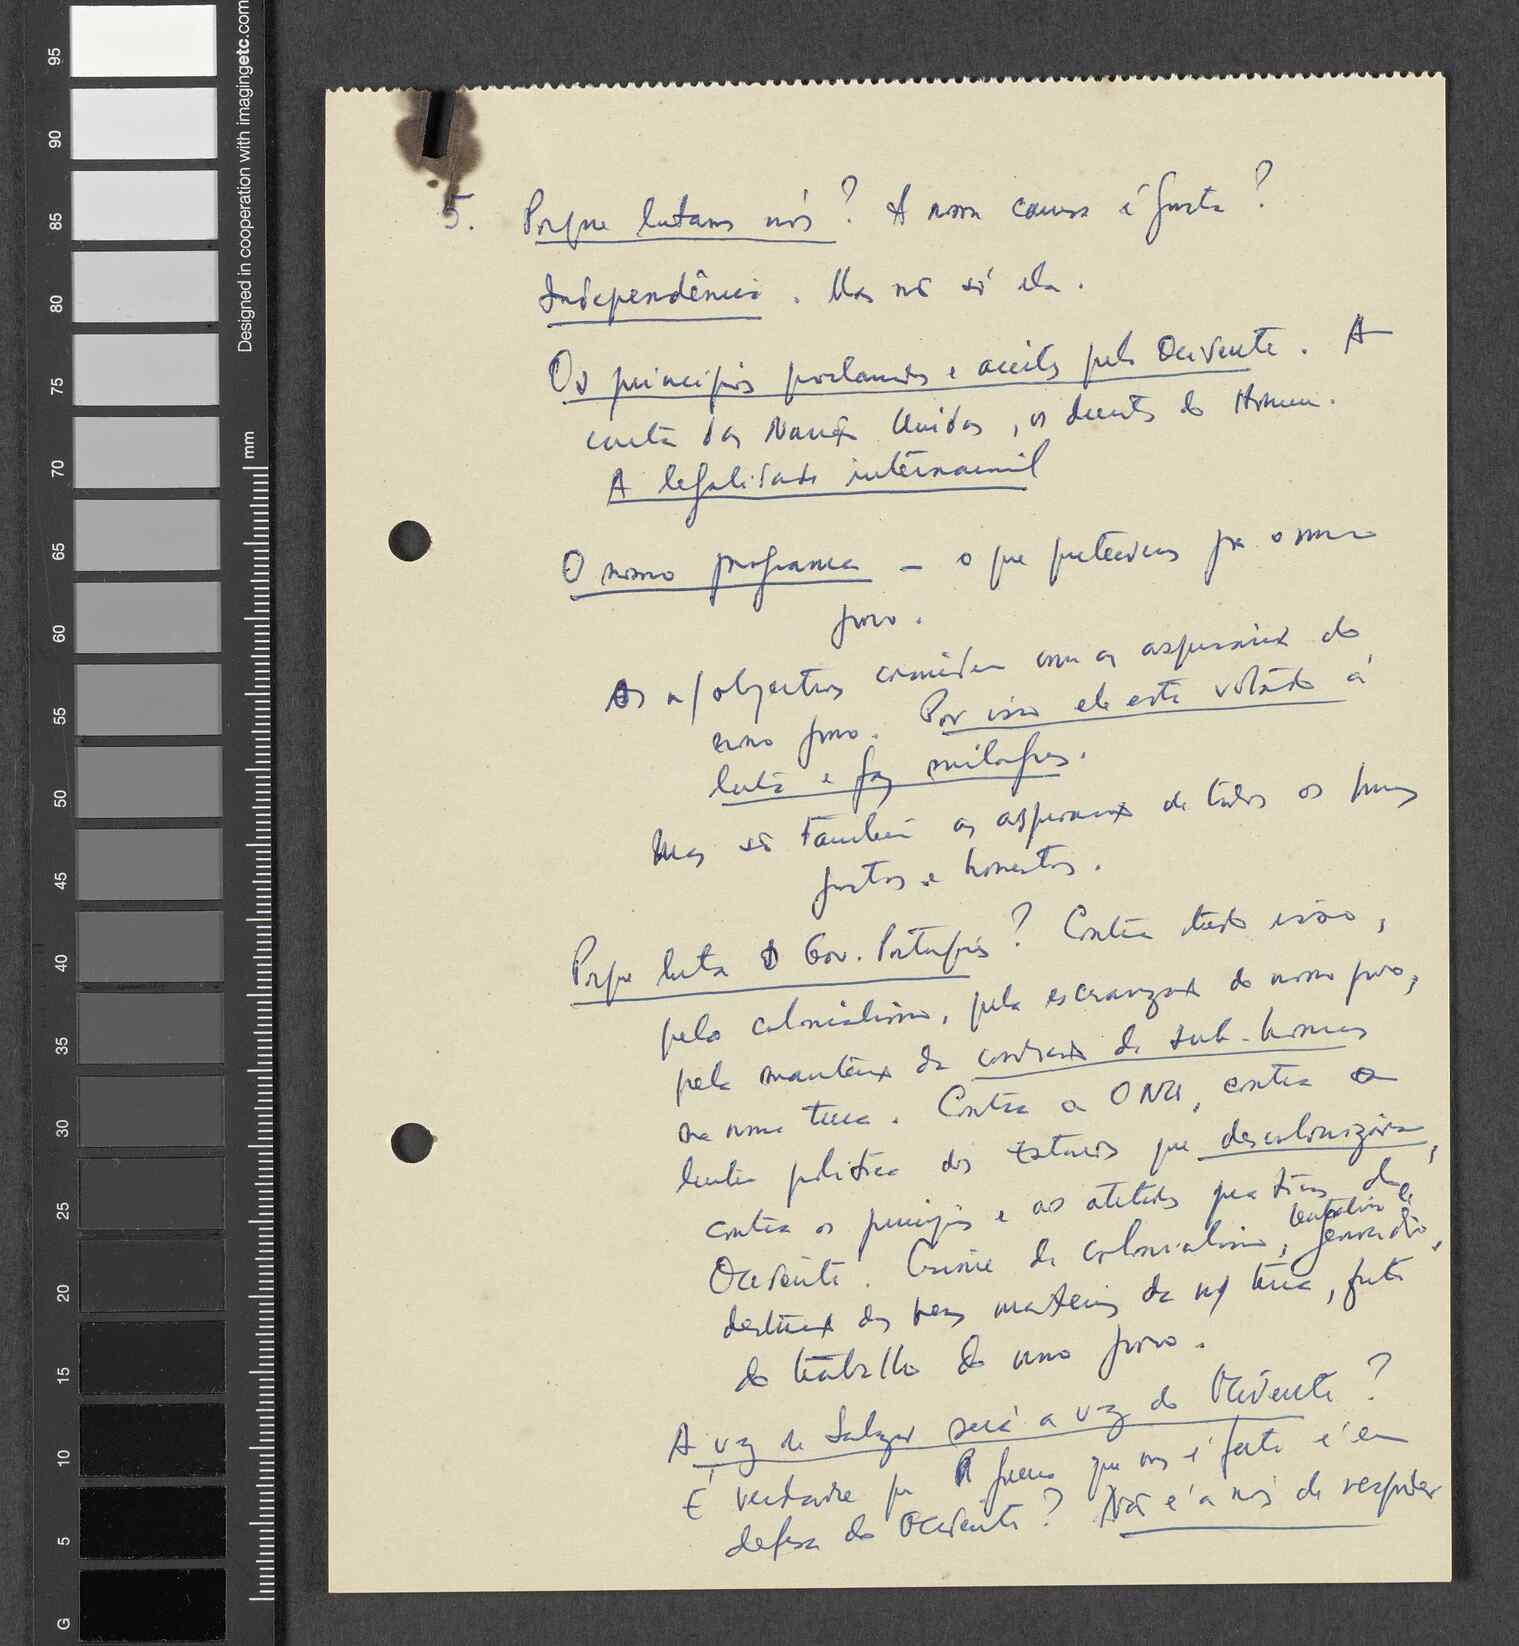 5. Porque lutamos nós? A nossa causa é justa?
Independência. Mas não só ela.
Os princípios proclamados e aceites pelo Ocidente. A
carta das Nações Unidas, os direitos do Homem.
A legalidade internacional
O nosso programa — o que pretendemos para o nosso
povo.
Os n/objectivos coincidem com as aspirações do
nosso povo. Por isso ele está votado à
luta e faz milagres.
Mas são também as aspirações de todos os povos
justos e honestos.
Porque luta o Gov. Português? Contra tudo isso,
pelo colonialismo, pela escravização do nosso povo,
pela manutenção da condição de sub-homens
na nossa terra. Contra a ONU, contra a
política dos Estados que descolonizaram,
contra os princípios e as atitudes práticas do
Ocidente. Crime de colonialismo, tentativa de
genocídio,
destruição dos bens materiais da n/ terra, fruto
do trabalho do nosso povo.
A voz de Salazar será a voz do Ocidente?
É verdade que a guerra que nos é feita é em
defesa do Ocidente? Não é a nós de responder
95
90
85
80
75
70
65
60
55
50
45
40
35
30
25
20
15
10
5
G
mm
Designed in cooperation with imagingetc.com